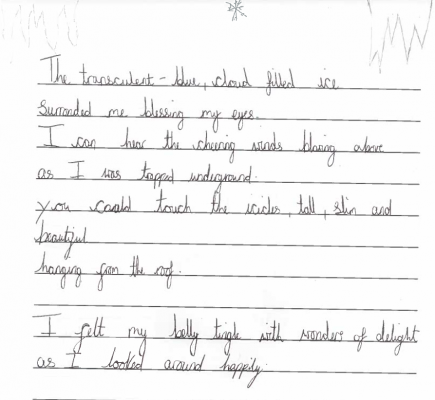 The transculent - blue, cloud filled ice
surronded me blessing my eyes.
I can hear the cheering winds blaring above
as I was trapped underground.
you could touch the icicles, tall, slim and
beautiful
hanging from the roof.
I felt my belly tingle with wonders of delight
as I looked around happily.